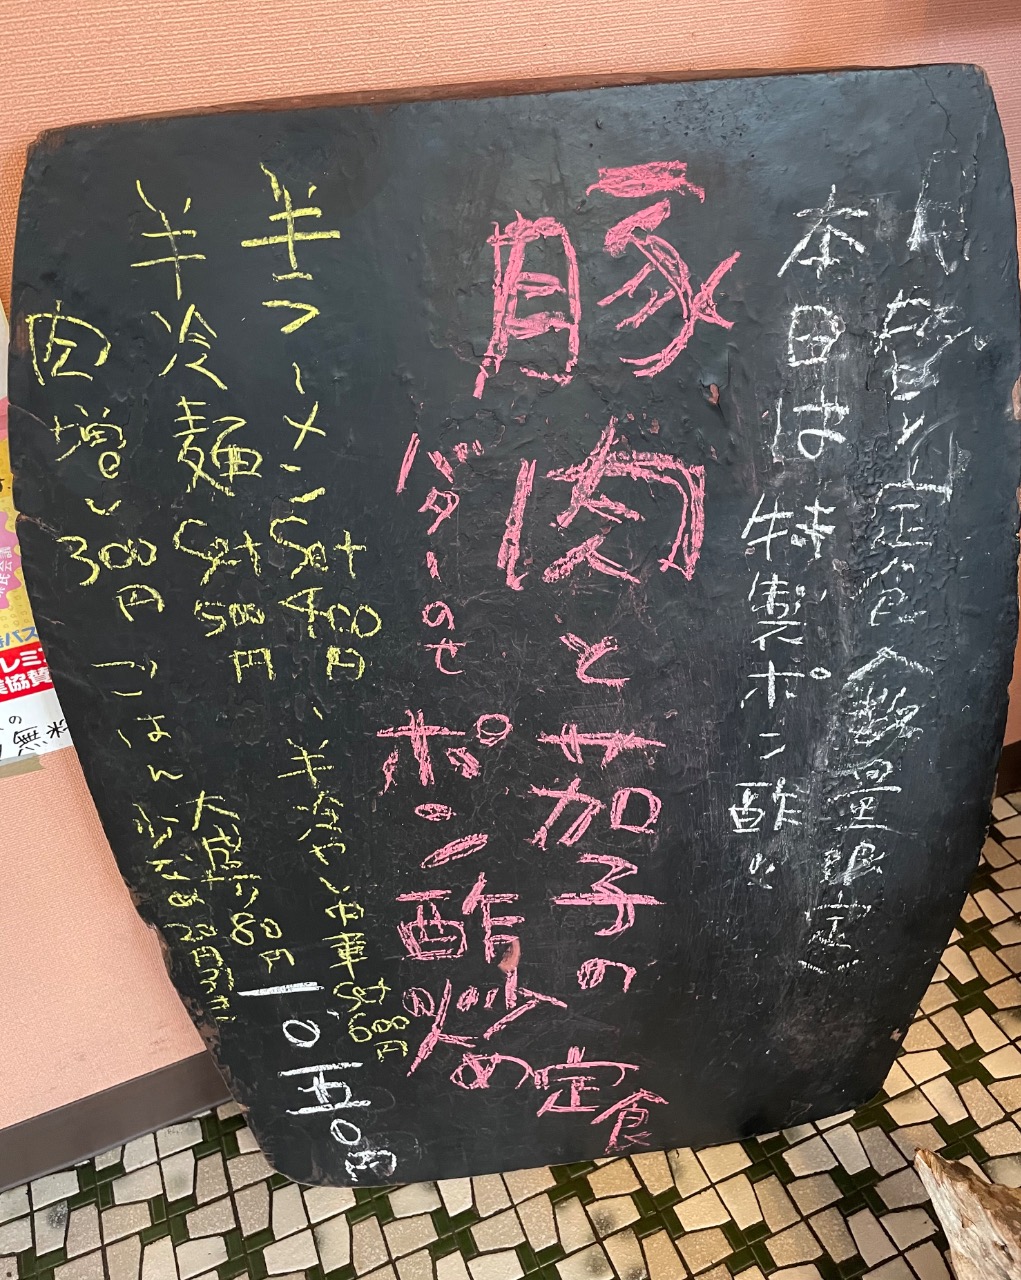 日替り定食(数量限定)
本日は特製ポン酢の
豚肉と茄子の
バターのせポン酢炒め定食
半ラーメンSet400円、半冷やし中華Set600円
半冷麺Set500円
大盛り80円
肉増し300円
ごはん少なめ
一〇五〇円